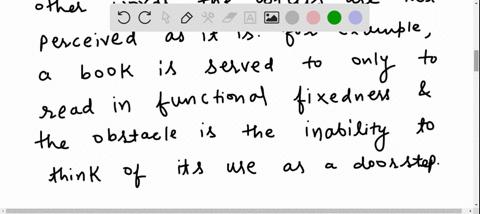 other
perceived as it is. for example,
a book is served to only to
read in functional fixedness &
the obstacle is the inability to
think of its use as a doorstep.